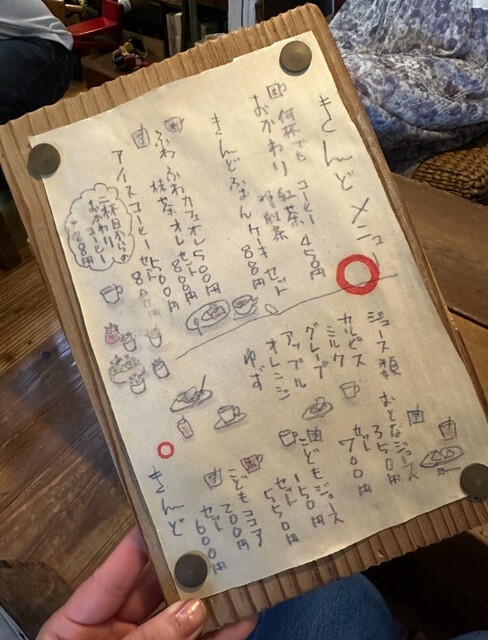 きんど メニュー
何杯でも コーヒー 450円
おかわり 紅茶
紅茶
きんどふぉんケーキ セット 880円
ふわふわカフェオレ 500円
抹茶オレ 500円
セット 880円
アイスコーヒー 500円
セット 880円
二杯目からの
おかわり
コーヒー
ジュース類
カルピス
ミルク
グレープ
アップル
オレンジ
ゆず
おとなジュース
350円
セット
700円
こどもジュース
150円
セット
550円
こどもココア
200円
セット
600円
きんど